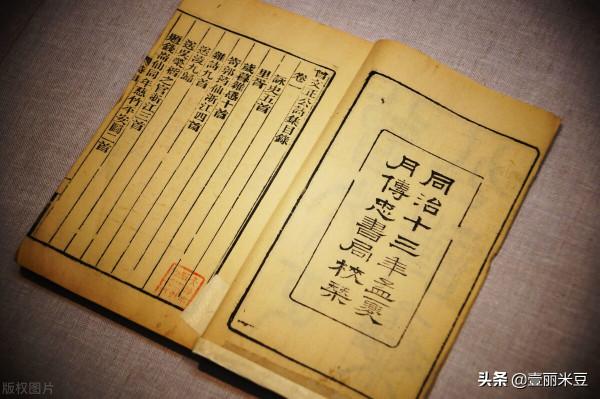 同治十三年孟夏
月傳忠書局校栞
曾文正公詩集目錄
卷一
詠史五首
里胥
歲暮雜感十首
寄郭筠仙浙江四首
雜詩九首
送凌九歸
送吳榮楷之官浙江三首
題錢崙仙同年慈竹平安圖二首
版权图片
头条 @壹丽米豆